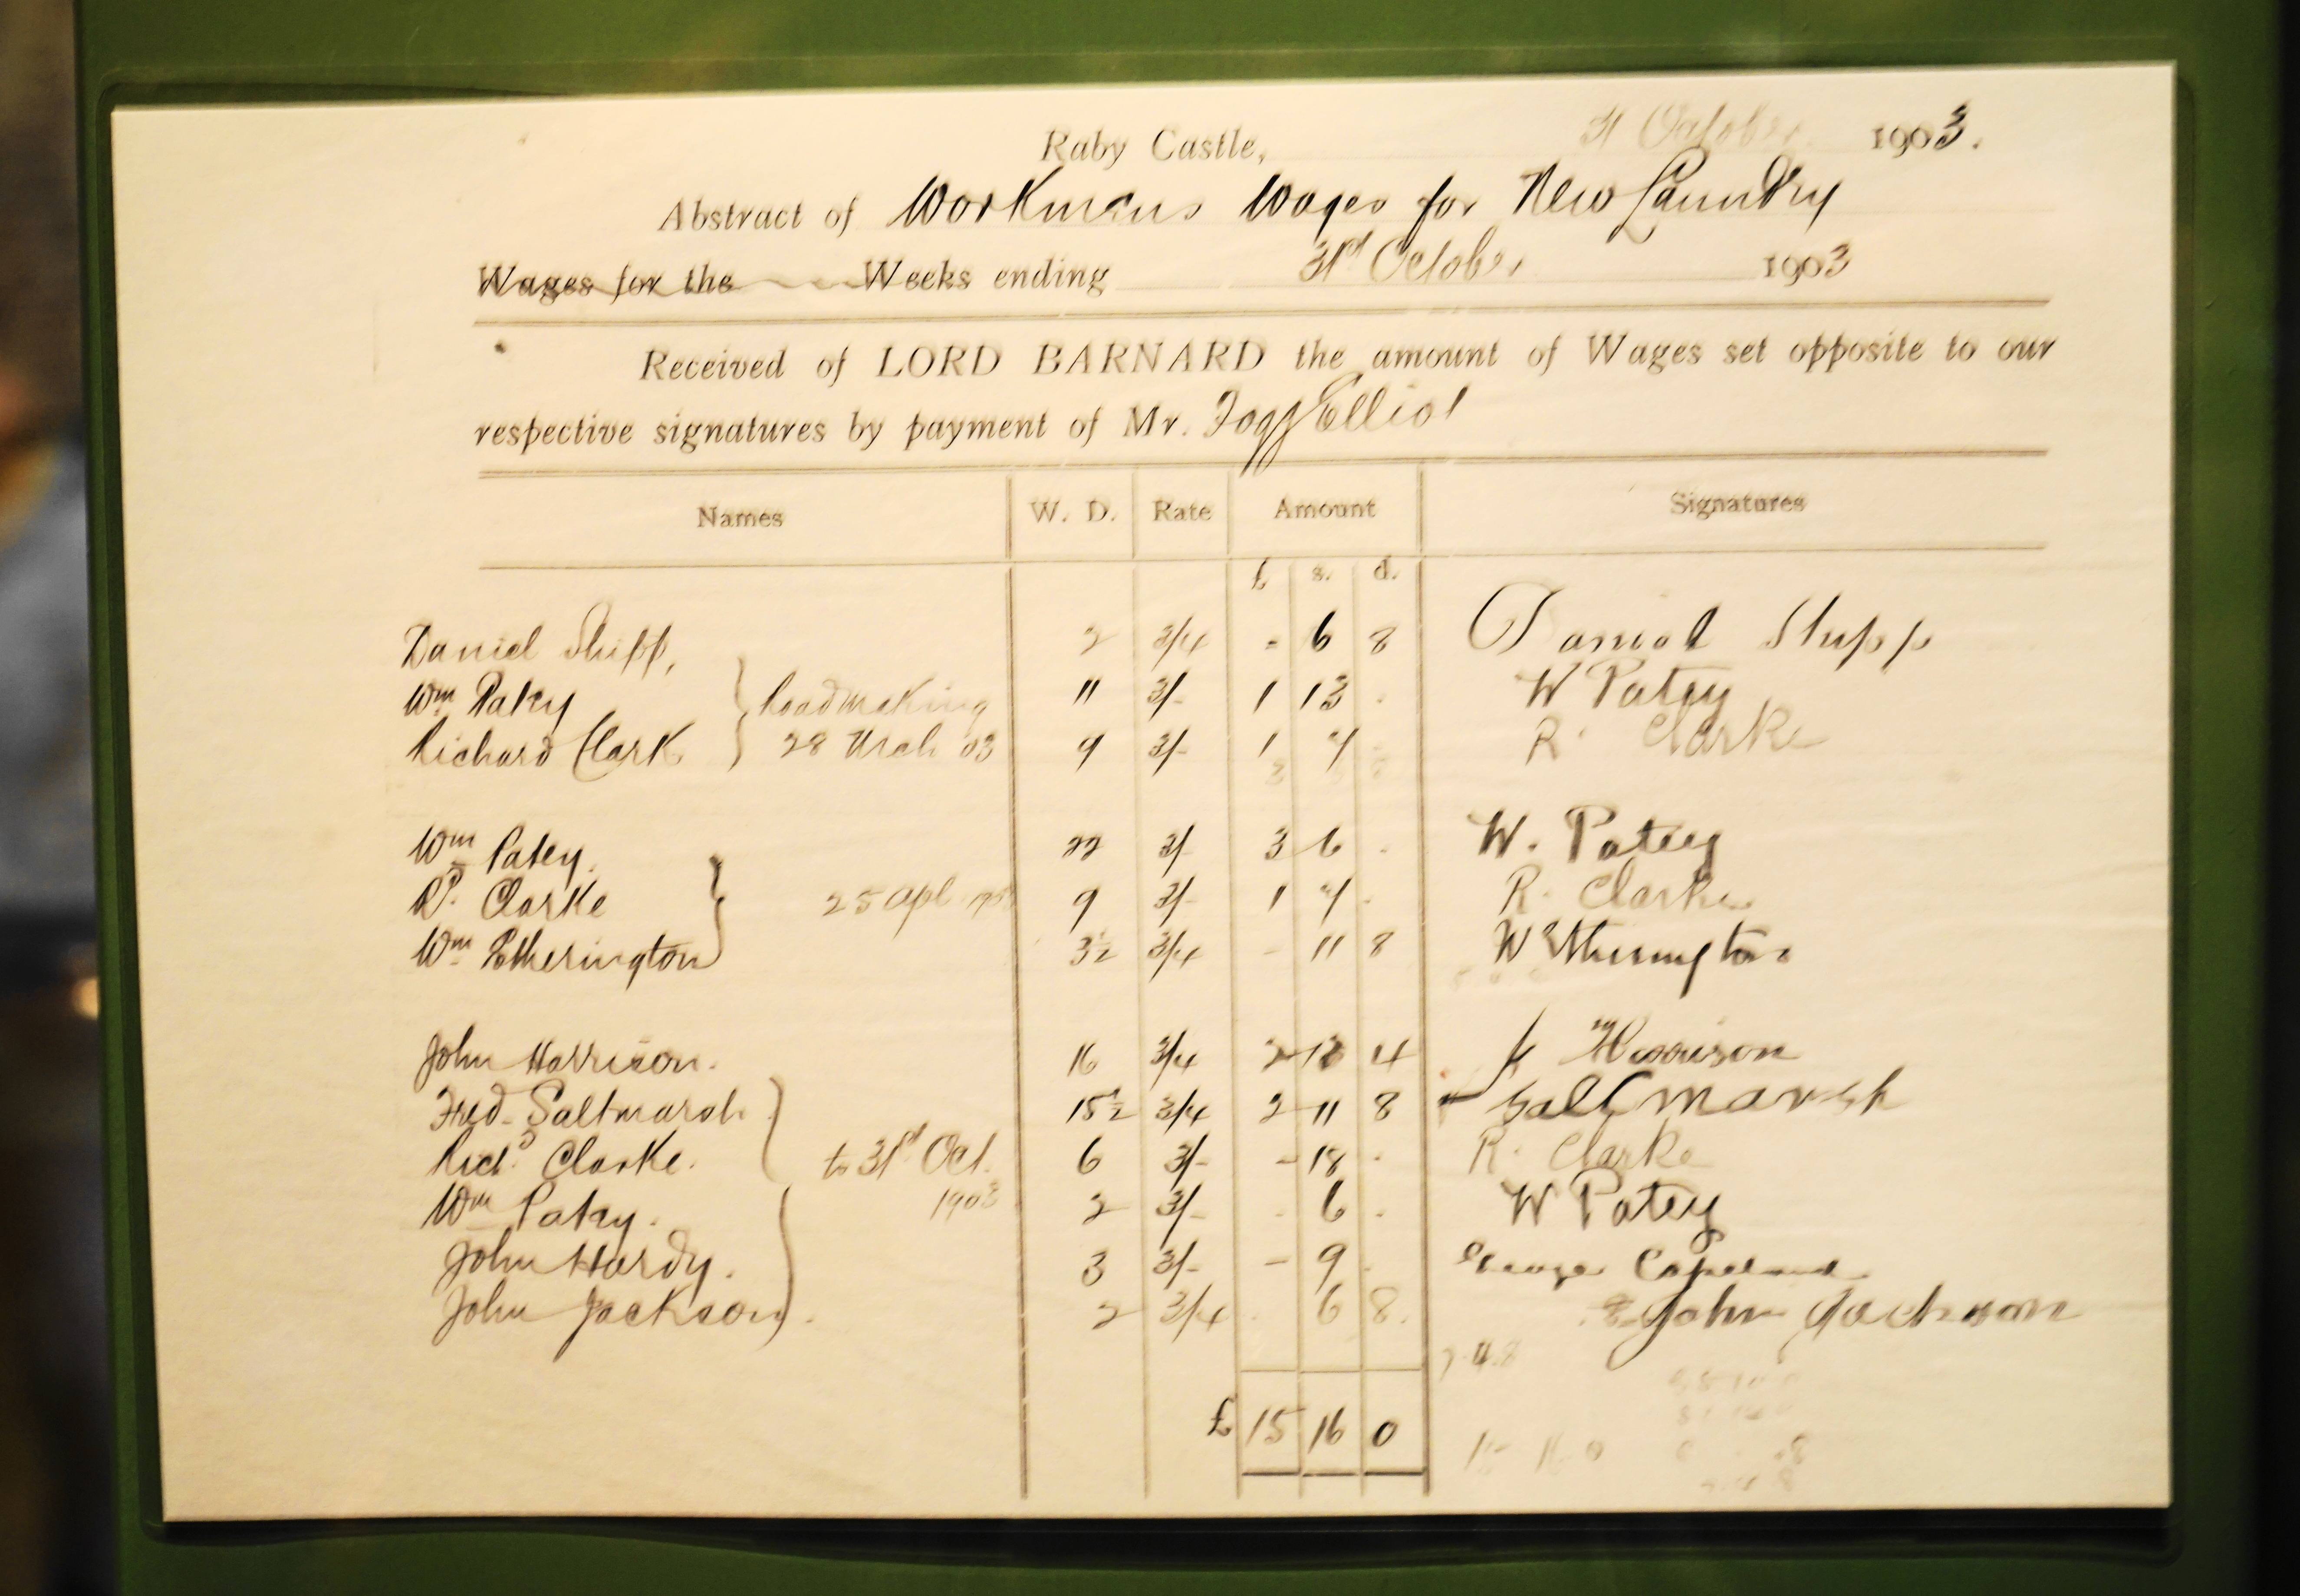 Raby Castle, 31 October 1903.
Abstract of Workmans Wages for New Laundry
Wages for the Weeks ending 31st October 1903
Received of LORD BARNARD the amount of Wages set opposite to our
respective signatures by payment of Mr. Fogg Elliot
Names W. D. Rate Amount Signatures
£ s. d.
Daniel Shipp, 2 3/4 - 6 8 Daniel Shipp
Wm Patey } Roadmaking 11 3/- 1 13 . W Patey
Richard Clark } 28 Mch 03 9 3/- 1 7 R. Clarke
Wm Patey. 22 3/- 3 6 . W. Patey
Rd. Clarke } 25 Apl 9 3/- 1 7 . R. Clarke
Wm Etherington 3½ 3/4 - 11 8 W Etherington
John Harrison. 16 3/4 2 13 4 Harrison
Fred. Saltmarsh } 15½ 3/4 2 11 8 Saltmarsh
Richd. Clarke. to 31st Oct. 6 3/- - 18 . R. Clarke
Wm Patey. 1903 2 3/- . 6 . W Patey
John Hardy. 3 3/- - 9 . George Copeland
John Jackson. 2 3/4 . 6 8. John Jackson
7.4.8
£ 15 16 0 15 16 0